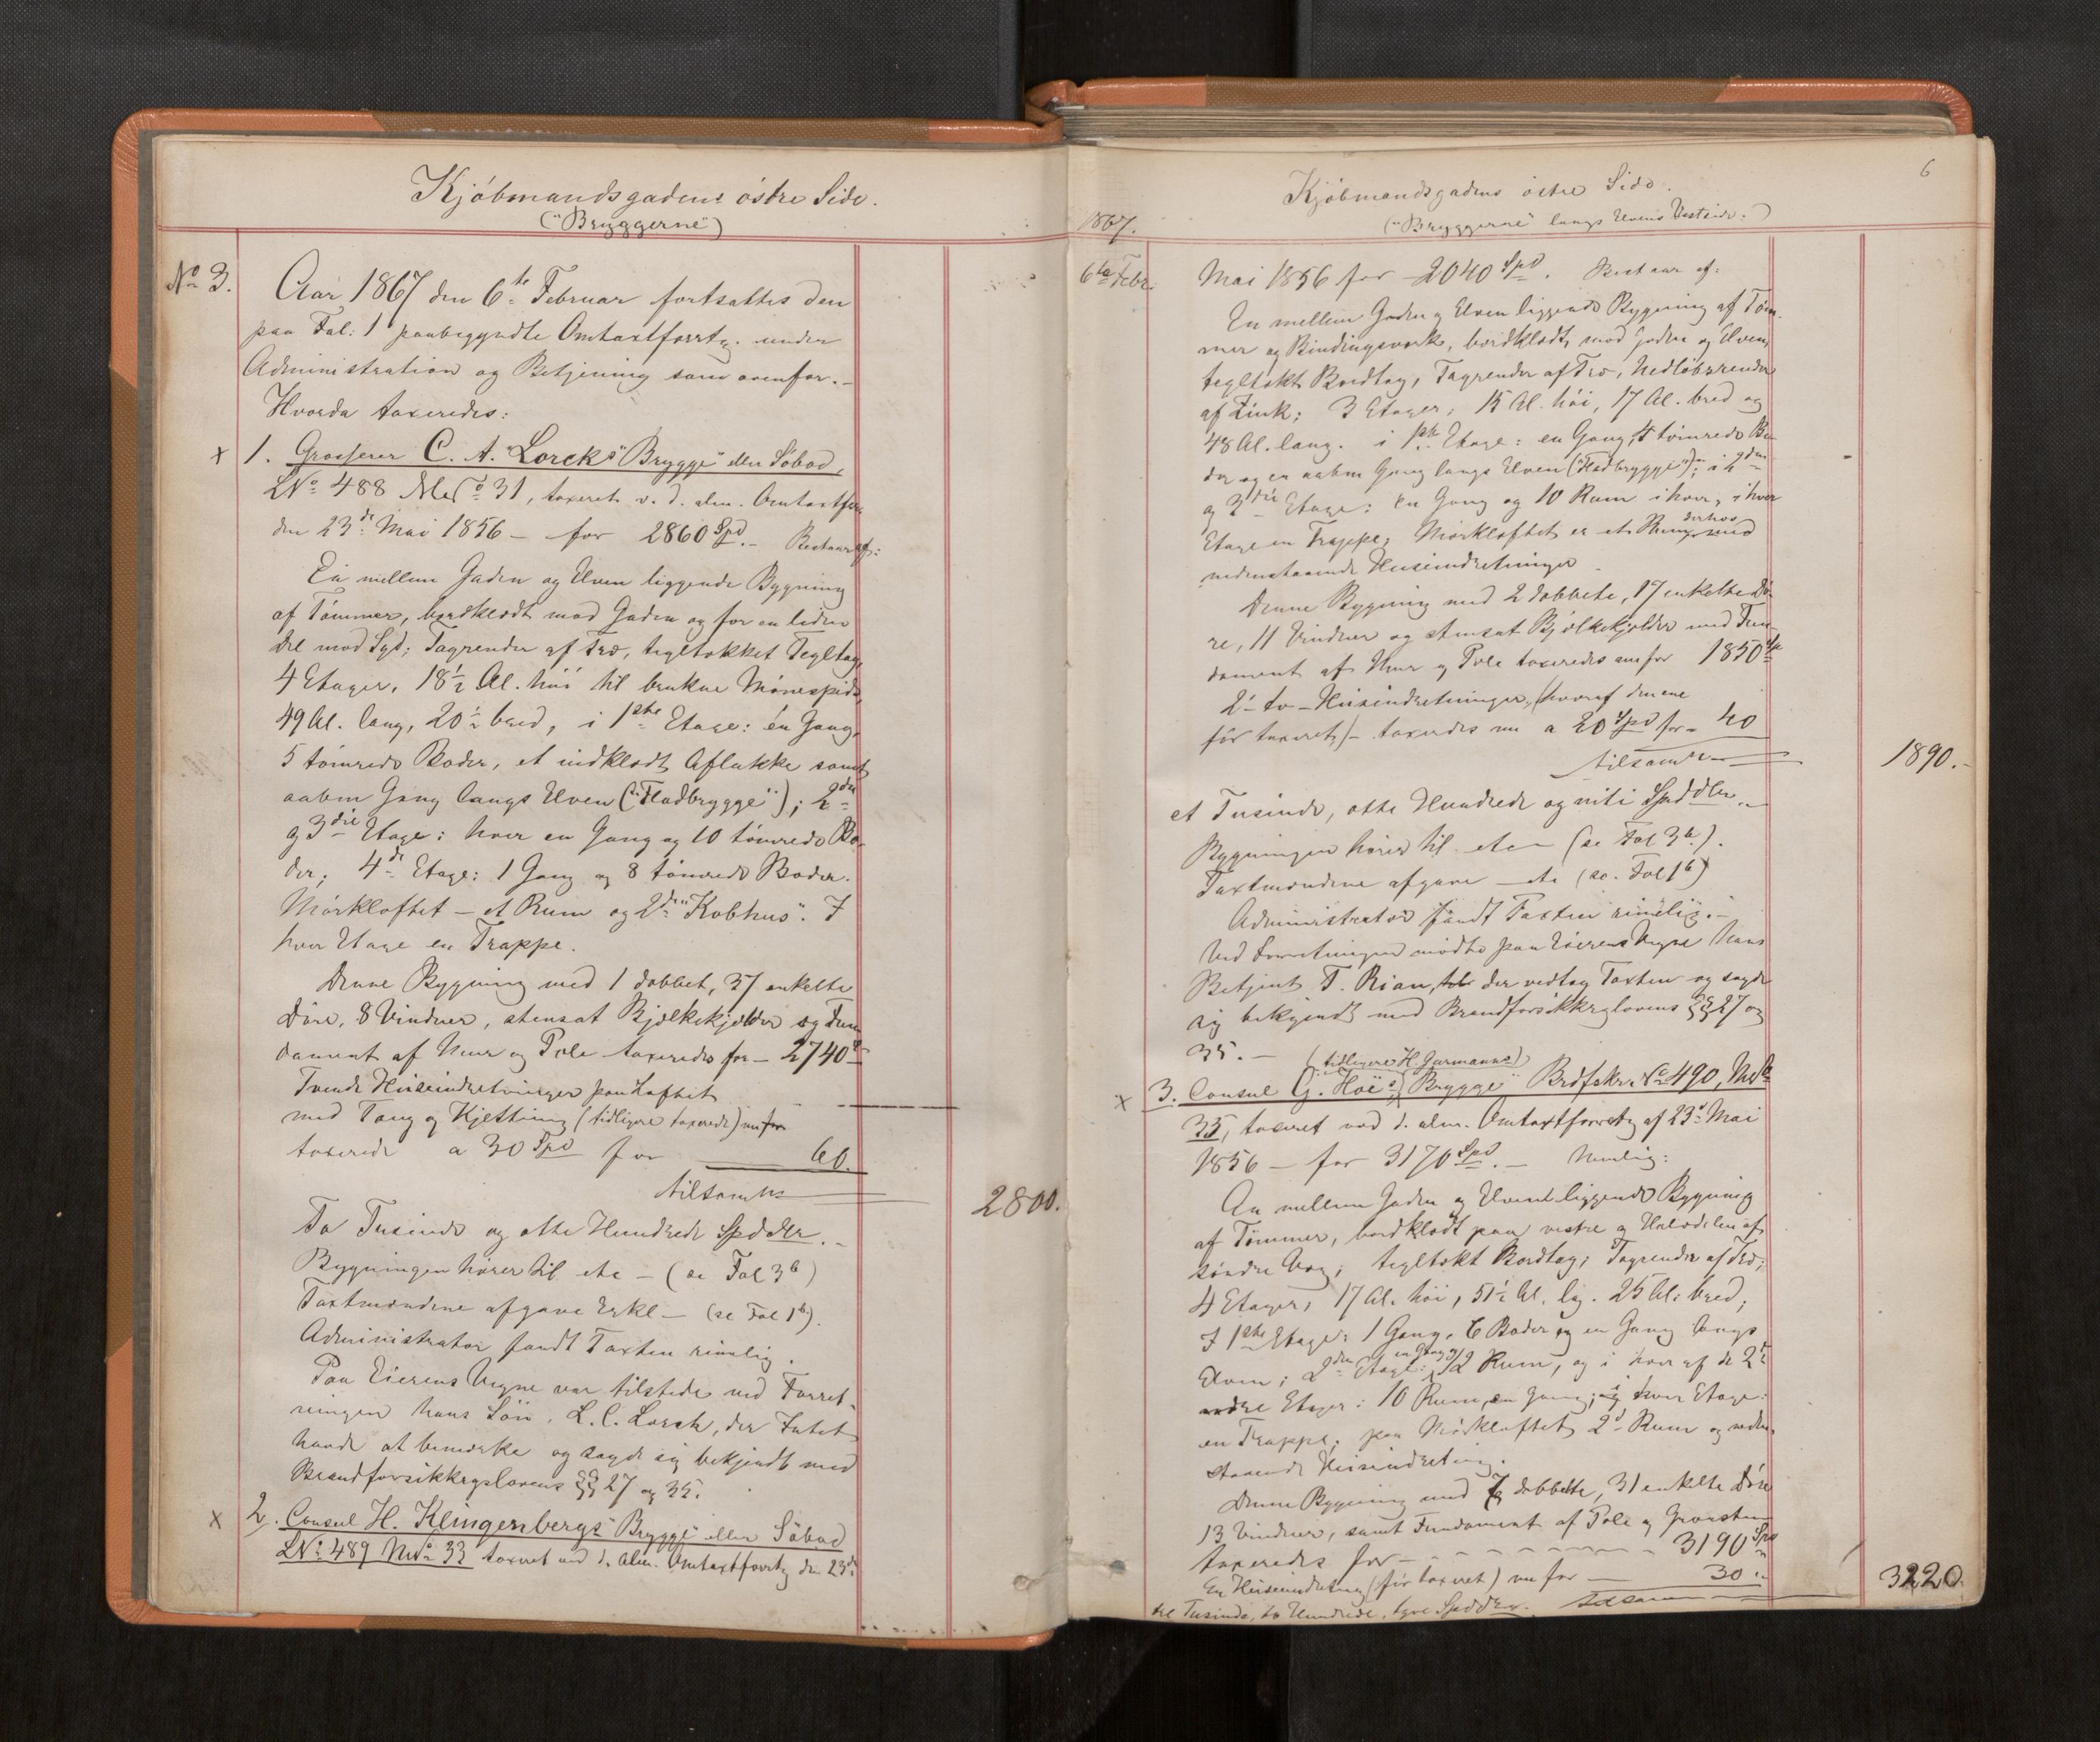 Kjöbmandsgadens östre Side.
("Bryggerne")
No 3.
Aar 1867 den 6te Februar fortsattes den
paa Fol: 1 paabegyndte Omtaxtforretg. under
Administration og Betjening som ovenfor.-
Hvorda taxeredes:
x 1. Grosserer C. A. Lorcks "Brygge" eller Söbod,
LNo 488 MNo 31, taxeret v. d. alm. Omtaxtforr.
den 23de Mai 1856 - for 2860 Spd.- Bestaar af:
En mellem Gaden og Elven liggende Bygning
af Tömmer, bordklædt mod Gaden og for en liden
Del mod Syd; Tagrender af Træ, tegltækket Tegltag,
4 Etager, 18½ Al. höi til brukne Mönespids,
49 Al. lang, 20½ bred, i 1ste Etage: én Gang,
5 tömrede Boder, et indklædt Aflukke samt
aaben Gang langs Elven ("Fladbrygge"); 2den
og 3die Etage: hver en Gang og 10 tömrede Bo-
der; 4de Etage: 1 Gang og 8 tömrede Boder.
Mörkloftet - et Rum og 2de "Kobhus". I
hver Etage en Trappe.
Denne Bygning med 1 dobbet, 37 enkelte
Döre, 8 Vinduer, stensat Bjelkekjelder og Fun-
dament af Muur og Pæle taxeredes for - 2740
Tvende Heiseindretninger paa Loftet
med Toug og Kjetting (tidligere taxerede) nu for
taxerede a 30 Spd for 60.
tilsamn 2800.
To Tusinde og otte Hundrede Spddlr.-
Bygningen hörer til etc - (se Fol 3b)
Taxtmændene afgave Erkl - (se Fol 1b).
Administrator fandt Taxten rimelig.
Paa Eierens Vegne var tilstede ved Forret-
ningen hans Sön, L. C. Lorck, der Intet
havde at bemærke og sagde sig bekjendt med
Brandforsikkrgslovens §§ 27 og 35.
x 2. Consul H. Klingenbergs "Brygge" eller Söbod
LNo 489 MNo 33 taxeret ved d. alm. Omtaxtforretg den 23de
6
Kjöbmandsgadens östre Side.
("Bryggerne" langs Elvens Vestside.)
1867.
6te Febr.
Mai 1856 for - 2040 Spd. Bestaar af:
En mellem Gaden og Elven liggende Bygning af Töm-
mer og Bindingsverk, bordklædt, mod Gaden og Elven,
tegltækt Bordtag, Tagrender af Træ, Nedlöbsrender
af Zink; 3 Etager, 15 Al. höi, 17 Al. bred og
48 Al. lang. i 1ste Etage: en Gang, 4 tömrede Bo-
der og en aaben Gang langs Elven ("Fladbrygge"); i 2den
og 3die Etage: en Gang og 10 Rum i hver, i hver
Etage en Trappe; Mörkloftet er et Rum, derhos med
nedenstaaende Heiseindretninger.
Denne Bygning med 2 dobbete, 17 enkelte Dö-
re, 11 Vinduer og stensat Bjelkekjelder med Fun-
dament af Muur og Pæle taxeredes nu for 1850 Sp
2 - to - Heiseindretninger, (hvoraf den ene
för taxeret) - taxeredes nu a 20 Spd for - 40
tilsamn 1890.-
et Tusinde, otte Hundrede og niti Spddlr.-
Bygningen hörer til etc - (se Fol 3b).
Taxtmændene afgave - etc (se. Fol 1b)
Administrator fandt Taxten rimelig.-
Ved Forretningen mödte paa Eierens Vegne hans
Betjent T. Rian, der vedtog Taxten og sagde
sig bekjendt med Brandforsikkrgslovens §§ 27 og
35. -
(tidligere H. Garmanns)
x 3. Consul G. Höe's "Brygge" Brdfskr. No 490, MNo
33, taxeret ved d. alm. Omtaxtforretg af 23de Mai
1856 - for 3170 Spd. - Nemlig:
En mellem Gaden og Elven liggende Bygning
af Tömmer, bordklædt paa vestre og Halvdelen af
söndre Væg; tegltækt Bordtag; Tagrender af Træ;
4 Etager, 17 Al. höi, 51½ Al. lg. 25 Al. bred;
I 1ste Etage: 1 Gang, 6 Boder og en Gang langs
Elven; 2den Etage: en Gang og 12 Rum, og i hver af de 2de
andre Etager: 10 Rum, en Gang; i hver Etage:
en Trappe; paa Mörkloftet 2de Rum og neden-
staaende Heiseindretning.
Denne Bygning med 7 dobbelte, 31 enkelte Döre
13 Vinduer, samt Fundament af Pæle og Graasteen
taxeredes for - 3190 Spd
En Heiseindretning (för taxeret) nu for - 30 "
tre Tusinde, to Hundrede, tyve Spddlr. tilsamn 3220.